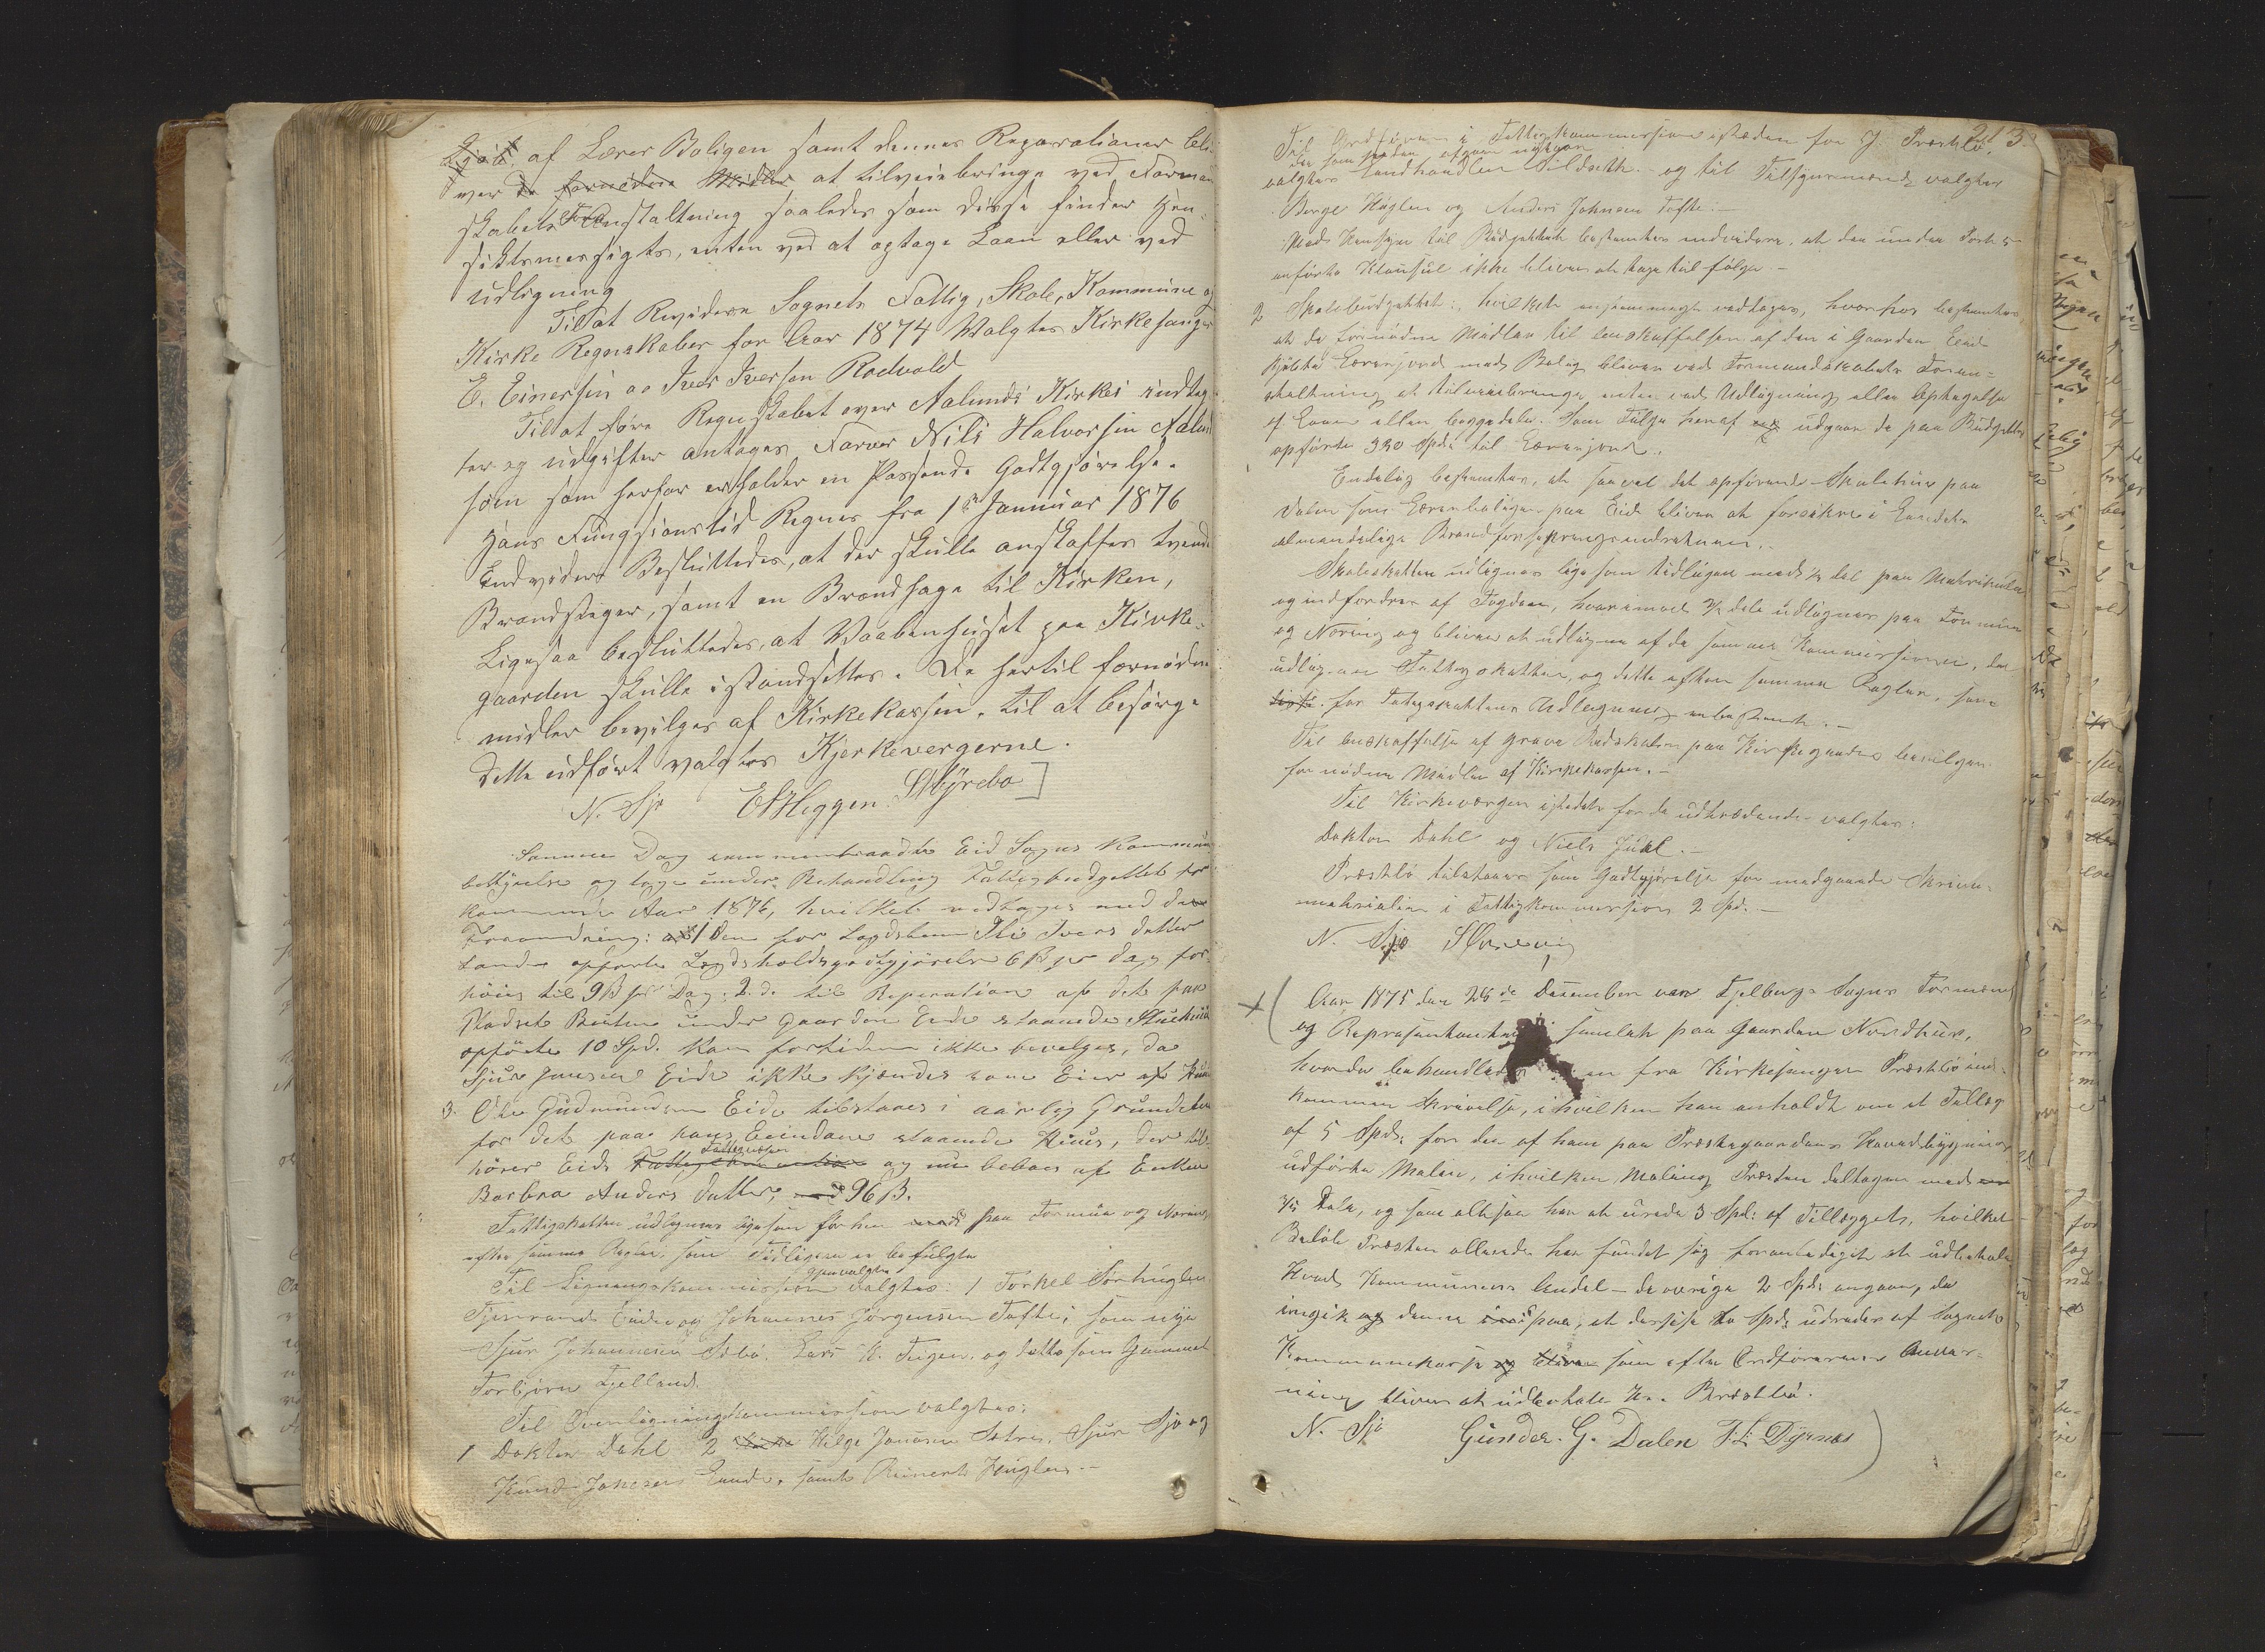 Kjøb af Lærer Boligen samt dennes Reparationer bli-
ver de fornødne Midler at tilveiebringe ved Forman
skabets Foranstaltning saaledes som disse finder Hen-
siktsmessigts, enten ved at optage Laan eller ved
Udligning
Til at Revidere Sognets Fattig, Skole, Kommune og
Kirke Regnskaber for Aar 1874 Valgtes Kirkesanger
E. Einersen og Iver Iversen Rodvold
Til at føre Regnskabet over Aalunds Kirkes indtæg
ter og udgifter antages Farver Nils Halvorsen
som herfor erholder en Passende Godtgjørelse.
Hans Fungsionstid Regnes fra 1ste Januar 1876
Endvidere Besluttedes, at der skulle anskaffes tvende
Brandstiger, samt en Brandhage til Kirken,
Ligesaa besluttedes, at Vaabenhuset paa Kirke-
gaarden skulle istandsettes. De hertil fornødne
midler bevilges af Kirkekassen. Til at besørge
dette udført valgtes Kjerkevergerne.
N. Sjo
Samme Dag sammentraadte Eid Sogns Kommune
bestyrelse og toge under Behandling Fattigbudgettet for
kommende Aar 1876, hvilket vedtages med den
Forandring: at 1 den for Lægdslem Ivers datter
opførte Lægdsholdsgodtgjørelse 6 ß pr dag for-
høies til 9 ß pr Dag; 2. de til Reperation af det paa
Pladset under Gaarden Eide staaende
opførte 10 Spd. kan fortiden ikke bevilges, da
Sjur Jansen Eide ikke kjendes som Eier af
3. Ole Gudmundsen Eide tilstaaes i aarlig Grundleie
for det paa hans Eiendom staaende Huus, der til-
hører Eids Fattigvæsen og nu beboes af Enken
Barbra Anders datter, 96 ß.
Fattigskatten udlignes ligesom før paa Formue og Næring
efter samme Regler, som Tidligere er befulgte
Til Ligningskommission gjenvalgtes: 1 Torkel Sørhuglen
Eide og Johannes Jørgensen Tofte; som nye
Sjur Johannesen Lars K. Teigen, og dette som Gammel
Torbjørn Fjelland.
Til Overligningskommission valgtes:
1 Doktor Dahl 2 Helge Jonasen Sjur Sjo og
Knud Johnsen samt Reinert Huglen.—
213.
Til Ordfører i Fattigkommission isteden for J. Præstbø,
der som saadan afgaar
valgtes Landhandler Tildseth og til Tilsynsmænd valgtes
Børge Huglen og Anders Johnsen Tofte.—
Med Hensyn til Budgettet bestemtes endvidere, at den under Post 5
anførte Klausul ikke bliver at tage tilfølge.—
2 Skolebudgettet:, hvilket enstemmigt vedtages, hvorhos bestemtes
at de fornødne Midler til Anskaffelsen af den i Gaarden Eide
kjøbte Lærerjord med Bolig bliver ved Formandskabets Foran-
staltning at tilveiebringe enten ved Udligning eller Optagelse
af Laan eller beggedele. Som Følge heraf udgaar de paa Budgettet
opførte 330 Spd. til Lærerjord.
Endelig bestemtes, at saavel det opførende Skolehus paa
Dalen som Lærerboligen paa Eide bliver at forsikre i Landets
almindelige Brandforsikringsindretning.
Skoleskatten udlignes ligesom tidligere med ⅓ del paa Matrikulen
og indfordres af Fogden, hvorimod ⅔ dele udlignes paa Formue
og Næring og bliver at udligne af de samme Kommissioner, der
udligner Fattigskatten, og dette efter samme Regler, som
for Fatigskattens Udligning er bestemt.—
Til Anskaffelse af grave Redskaber paa Kirkegaarden bevilges
fornødne Midler af Kirkekassen.—
Til Kirkeværger istedet for de udtrædende valgtes:
Doktor Dahl og Niels Juul.—
Præstbø tilstaaes som Godtgjørelse for medgaaede Skrive-
materialier i Fattigkommission 2 Spd.—
N. Sjo
Aar 1875 den 28de Desember var Fjelberg Sogns Formænd
og Repræsentanter samlet paa Gaarden Nordhus,
hvorder behandledes en fra Kirkesanger Præstbø ind-
kommen Skrivelse, i hvilken han anholdt om et Tillæg
af 5 Spd. for den af ham paa Præstegaardens Hovedbygning
udførte Maling, i hvilken Maling Præsten deltager med
⅗ Dele, og som altsaa har at urede 3 Spd. af Tillægget, hvilket
Beløb Præsten allerede har fundet sig foranlediget at udbetale
Hvad Kommunens Andel — de øvrige 2 Spd. angaar, da
ingik denne paa, at disse to Spd. udredes af Sognets
Kommunekasse som efter Ordførerens Anvis-
ning bliver at udbetale Hr. Præstbø.
N. Sjo Gunder. G. Dalen